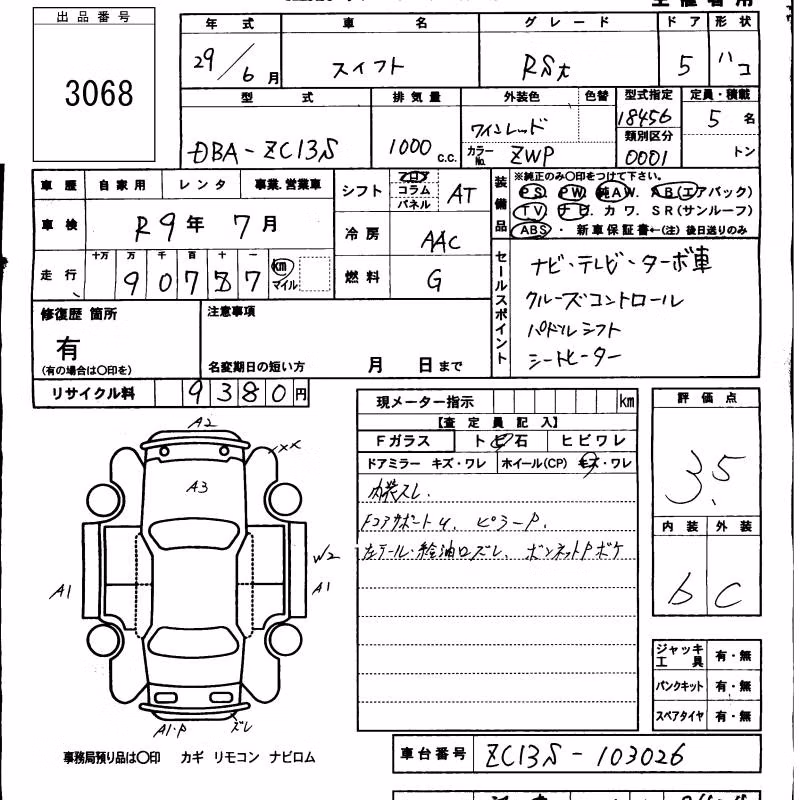 出品番号
3068
年式 車名 グレード ドア 形状
29/6月 スイフト RSt 5 ハコ
型式 排気量 外装色 色替 型式指定 定員・積載
DBA-ZC13S 1000 c.c. ワインレッド 18456 5名
カラーNo. ZWP 類別区分 0001 トン
車歴 自家用 レンタ 事業.営業車
シフト フロア コラム パネル AT
装備品 ※純正のみ〇印をつけて下さい。
PS. PW. 純AW. AB(エアバック)
TV. ナビ. カワ. SR(サンルーフ)
ABS ・ 新車保証書←(注) 後日送りのみ
車検 R9年 7月
冷房 AAC
走行 十万 万 千 百 十 一
90787 km マイル
燃料 G
セールスポイント
ナビ・テレビ・ターボ車
クルーズコントロール
パドルシフト
シートヒーター
修復歴 箇所
有
(有の場合は〇印を)
注意事項
名変期日の短い方 月 日まで
リサイクル料 9380円
現メーター指示 km
【査定員記入】
Fガラス トビ石 ヒビワレ
ドアミラー キズ・ワレ ホイール(CP) キズ・ワレ
内装スレ.
ドコアサポートU. ピラーP.
左テール・給油口ズレ、ボンネットPボケ
評価点
3.5
内装 外装
b C
A2
XXX
A3
W2
A1
A1
A1・P
ズレ
ジャッキ工具 有・無
パンクキット 有・無
スペアタイヤ 有・無
事務局預り品は〇印 カギ リモコン ナビロム
車台番号 ZC13S-103026